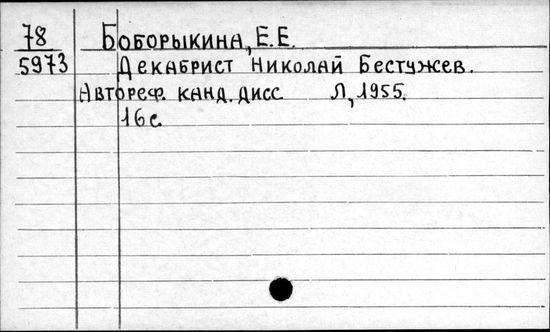 78 Боборыкина, Е.Е.
5973 Декабрист Николай Бестужев.
Автореф. канд. дисс Л, 1955.
16с.